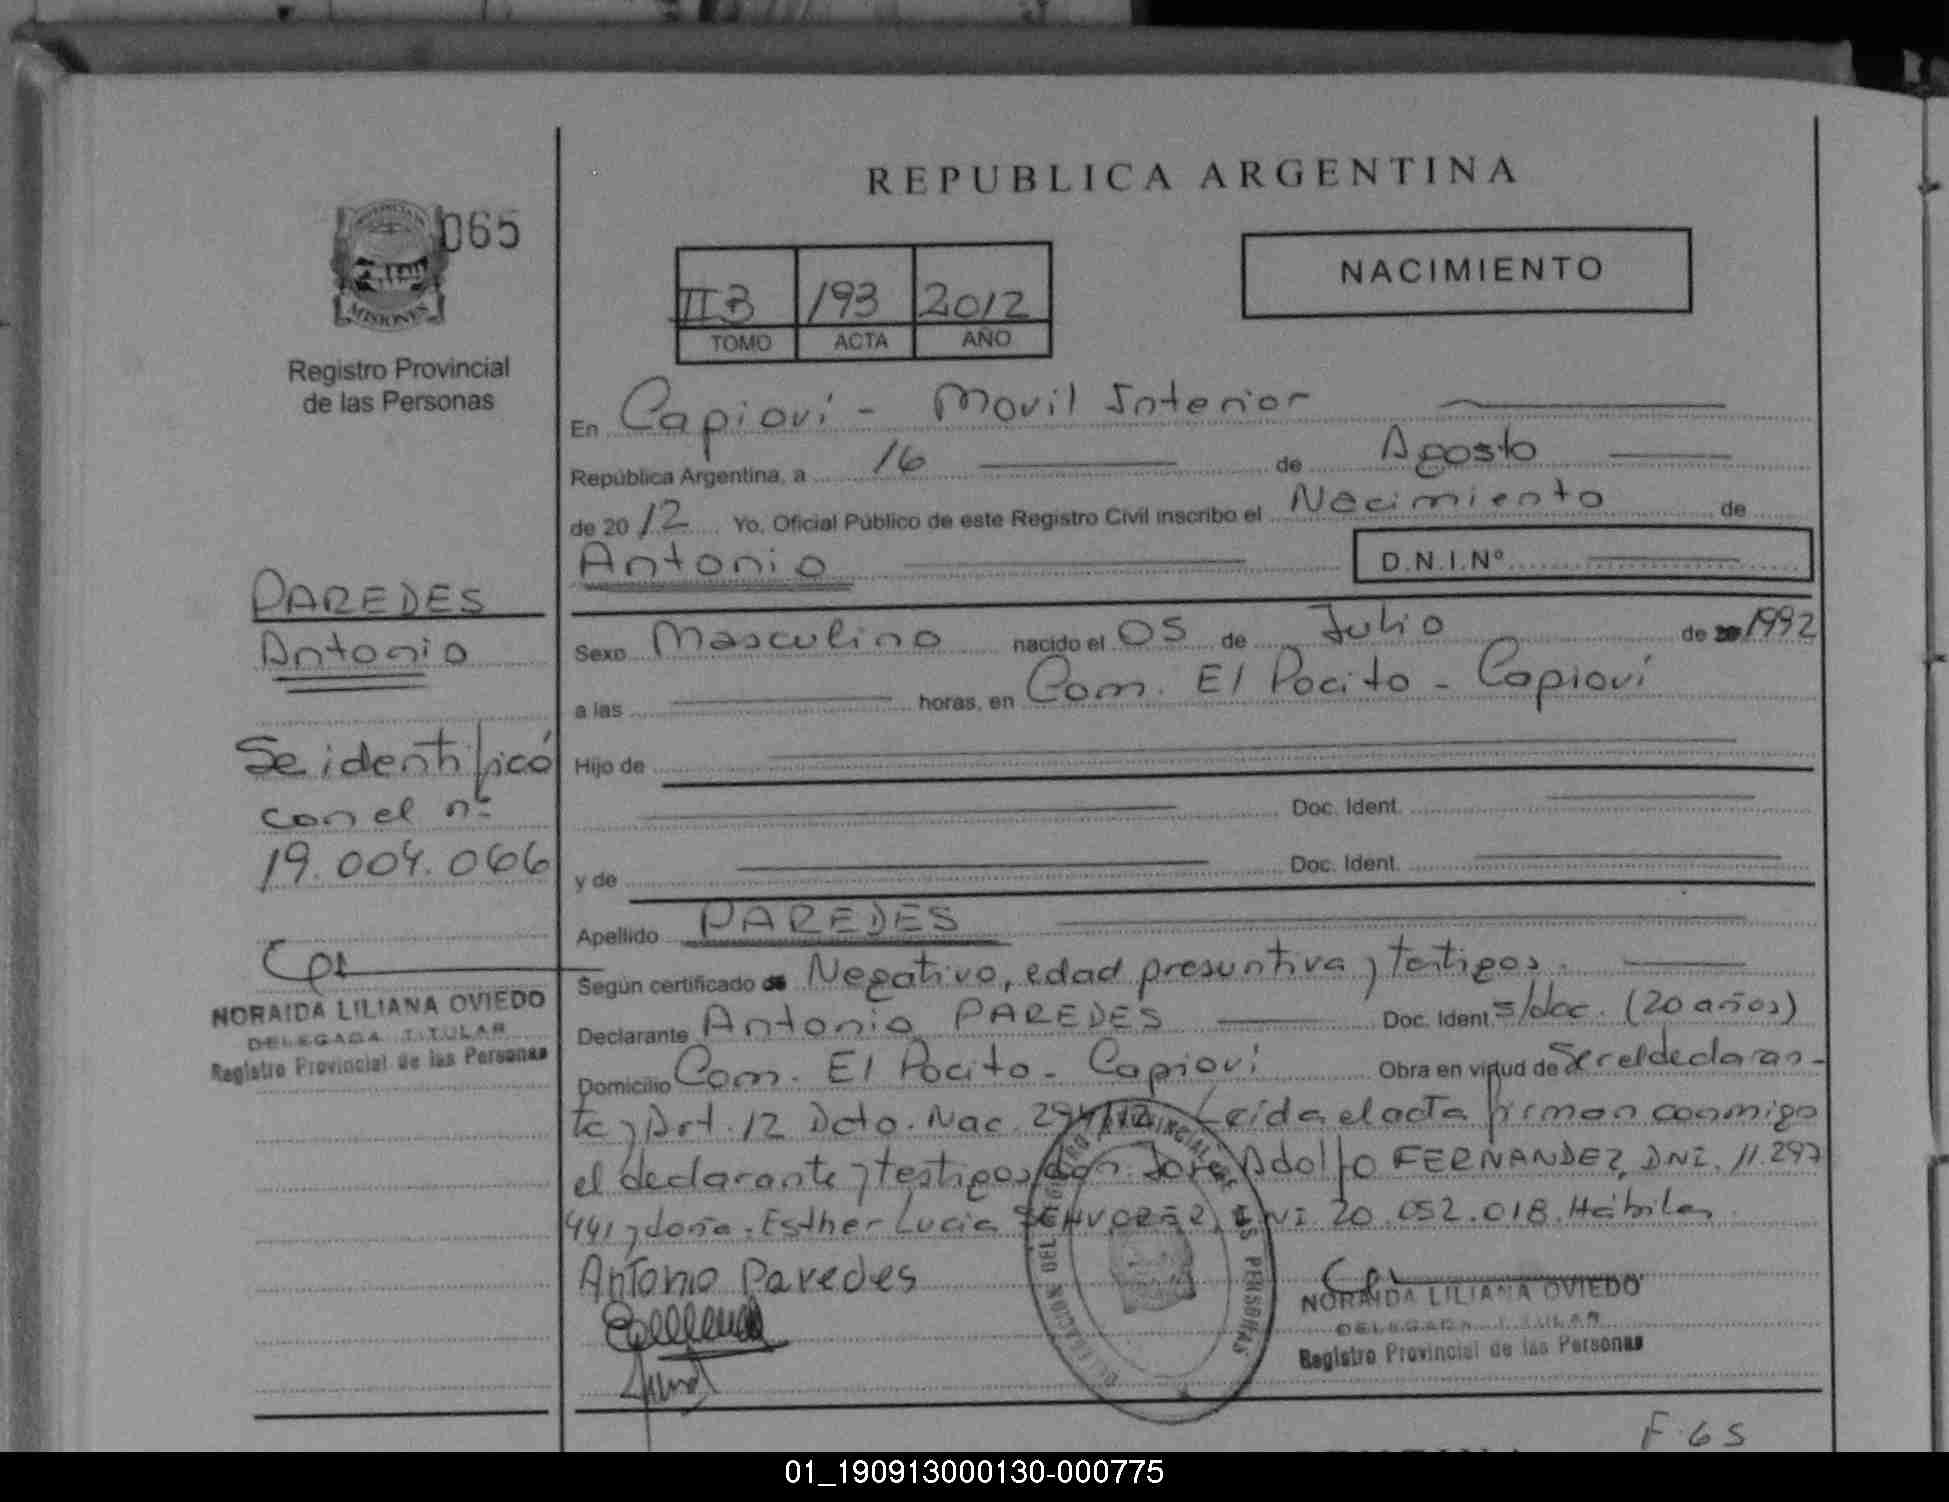 REPUBLICA ARGENTINA
065
MISIONES
Registro Provincial
de las Personas
II B 193 2012
TOMO ACTA AÑO
NACIMIENTO
En Capioví - Movil Interior
República Argentina, a 16 de Agosto
de 2012 Yo, Oficial Público de este Registro Civil inscribo el Nacimiento de
Antonio D.N.I.Nº
PAREDES
Antonio
Se identificó
con el nº
19.004.066
NORAIDA LILIANA OVIEDO
DELEGADA TITULAR
Registro Provincial de las Personas
Sexo Masculino nacido el 05 de Julio de 1992
a las horas, en Com. El Pocito - Capioví
Hijo de
Doc. Ident.
y de Doc. Ident.
Apellido PAREDES
Según certificado de Negativo, edad presuntiva y testigos.
Declarante Antonio PAREDES Doc. Ident. s/doc. (20 años)
Domicilio Com. El Pocito - Capioví Obra en virtud de Ser el declaran-
te y Art. 12 Dcto. Nac. Leída el acta firman conmigo
el declarante y testigos don José Adolfo FERNANDEZ, DNI. 11.297
441 y doña Esther Lucia DNI 20.052.018. Hábiles
Antonio Paredes
NORAIDA LILIANA OVIEDO
DELEGADA TITULAR
Registro Provincial de las Personas
DELEGACION DEL REGISTRO PROVINCIAL DE LAS PERSONAS
F. 65
01_190913000130-000775